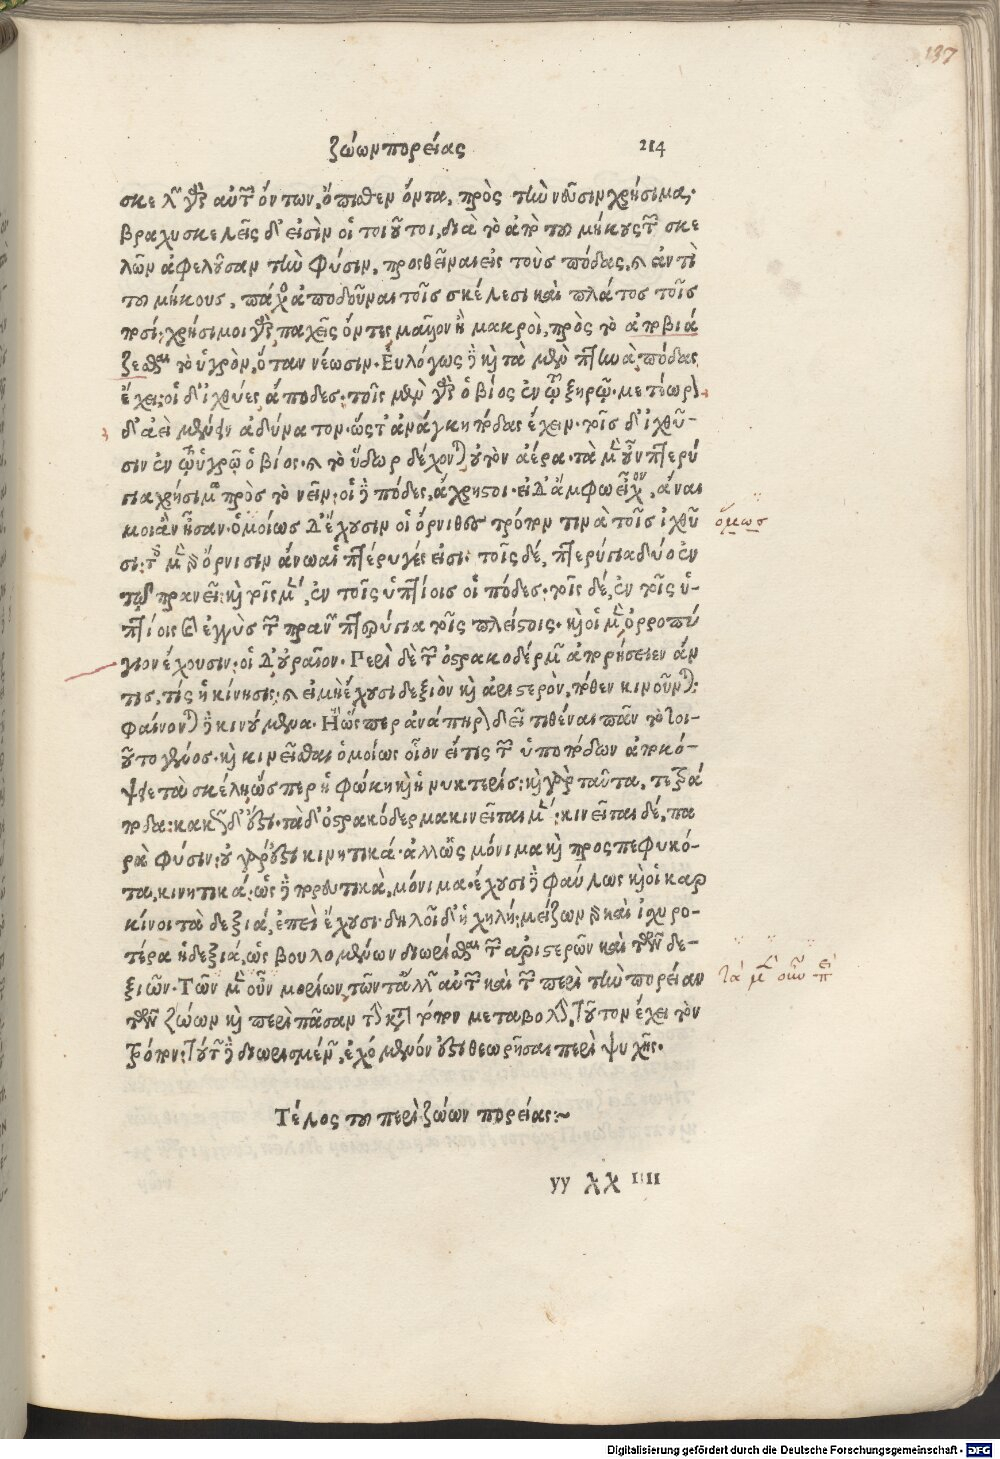 137
ζώων πορείας 214
σκελῶν γὰρ αὐτῶν ὄντων, ὄπισθεν ὄντα, πρὸς τὴν νεῦσιν χρήσιμα.
βραχυσκελεῖς δ' εἰσὶν οἱ τοιοῦτοι, διὰ τὸ ἀπὸ τοῦ μήκους τῶν σκε
λῶν ἀφελοῦσαν τὴν φύσιν, προσθεῖναι εἰς τοὺς πόδας, καὶ ἀντὶ
τοῦ μήκους, πάχος ἀποδοῦναι τοῖς σκέλεσι καὶ πλάτος τοῖς
ποσί· χρήσιμοι γὰρ παχεῖς ὄντες μᾶλλον ἢ μακροὶ, πρὸς τὸ ἀποβιά
ζεσθαι τὸ ὑγρὸν, ὅταν νέωσιν. Εὐλόγως δὲ καὶ τὰ μὲν πτηνὰ πόδας
ἔχει; οἱ δ' ἰχθύες ἄποδες. τοῖς μὲν γὰρ ὁ βίος ἐν τῷ ξηρῷ. μετέωρον
δ' ἀεὶ μένειν ἀδύνατον. ὥστ' ἀνάγκη πόδας ἔχειν. τοῖς δ' ἰχθύ-
σιν ἐν τῷ ὑγρῷ ὁ βίος. καὶ τὸ ὕδωρ δέχονται οὐ τὸν ἀέρα. τὰ μὲν οὖν πτερύ
για χρήσιμα πρὸς τὸ νεῖν; οἱ δὲ πόδες, ἄχρηστοι. εἰ δ' ἄμφω εἶχον, ἄναι
μοι ἂν ἦσαν. ὁμοίως δ' ἔχουσιν οἱ ὄρνιθες τρόπον τινὰ τοῖς ἰχθῦ
ὅμως
σι; τοῖς μὲν γὰρ ὄρνισιν ἄνω αἱ πτέρυγές εἰσι. τοῖς δέ, πτερύγια δύο ἐν
τῷ πρανεῖ; καὶ τοῖς μὲν, ἐν τοῖς ὑπτίοις οἱ πόδες. τοῖς δέ, ἐν τοῖς ὑ-
πτίοις καὶ ἐγγὺς τῶν πρανῶν πτερύγια τοῖς πλείστοις. καὶ οἱ μὲν, ὀρροπύ
γιον ἔχουσιν; οἱ δ' οὐραῖον. Περὶ δὲ τῶν ὀστρακοδέρμων ἀπορήσειεν ἄν
τις, τίς ἡ κίνησις; καὶ εἰ μὴ ἔχουσι δεξιὸν καὶ ἀριστερὸν, πόθεν κινοῦνται;
φαίνονται δὲ κινούμενα. Ἢ ὥσπερ ἀνάπηρον δεῖ τιθέναι πᾶν τὸ τοι-
οῦτο γένος. καὶ κινεῖσθαι ὁμοίως οἷον εἴ τις τῶν ὑποπόδων ἀποκό-
ψειε τὰ σκέλη, ὥσπερ ἡ φώκη καὶ ἡ νυκτερίς; καὶ γὰρ ταῦτα, τετρά
ποδα; κακῶς δ' ἐστί. τὰ δ' ὀστρακόδερμα κινεῖται μέν; κινεῖται δέ, πα
ρὰ φύσιν; οὐ γάρ ἐστι κινητικά. ἀλλ' ὡς μόνιμα καὶ προσπεφυκό-
τα, κινητικά; ὡς δὲ πορευτικὰ, μόνιμα. ἔχουσι δὲ φαύλως καὶ οἱ καρ
κίνοι τὰ δεξιά, ἐπεὶ ἔχουσι. δηλοῖ δ' ἡ χηλή; μείζων γὰρ καὶ ἰσχυρο-
τέρα ἡ δεξιά, ὡς βουλομένων διωρίσθαι τῶν ἀριστερῶν καὶ τῶν δε-
ξιῶν. Τῶν μὲν οὖν μορίων, τῶν τ' ἄλλων αὐτῶν καὶ τῶν περὶ τὴν πορείαν
τὰ μὲν οὖν περὶ
τῶν ζώων καὶ περὶ πᾶσαν τὴν κατὰ τόπον μεταβολήν, τοῦτον ἔχει τὸν
τρόπον; τούτων δὲ διωρισμένων, ἐχόμενόν ἐστι θεωρῆσαι περὶ ψυχῆς.
Τέλος τοῦ περὶ ζώων πορείας:~
yy λχ IIII
Digitalisierung gefördert durch die Deutsche Forschungsgemeinschaft - DFG